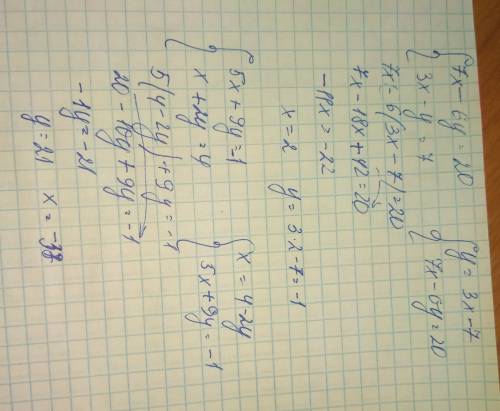 { 7x - 6y = 20   { y = 3x - 7
{ 3x - y = 7   { 7x - 6y = 20
7x - 6(3x - 7) = 20
7x - 18x + 42 = 20
-11x = -22
x = 2   y = 3·2 - 7 = -1
{ 5x + 9y = -1   { x = 4 - 2y
{ x + 2y = 4   { 5x + 9y = -1
5(4 - 2y) + 9y = -1
20 - 10y + 9y = -1
-1y = -21
y = 21   x = -38